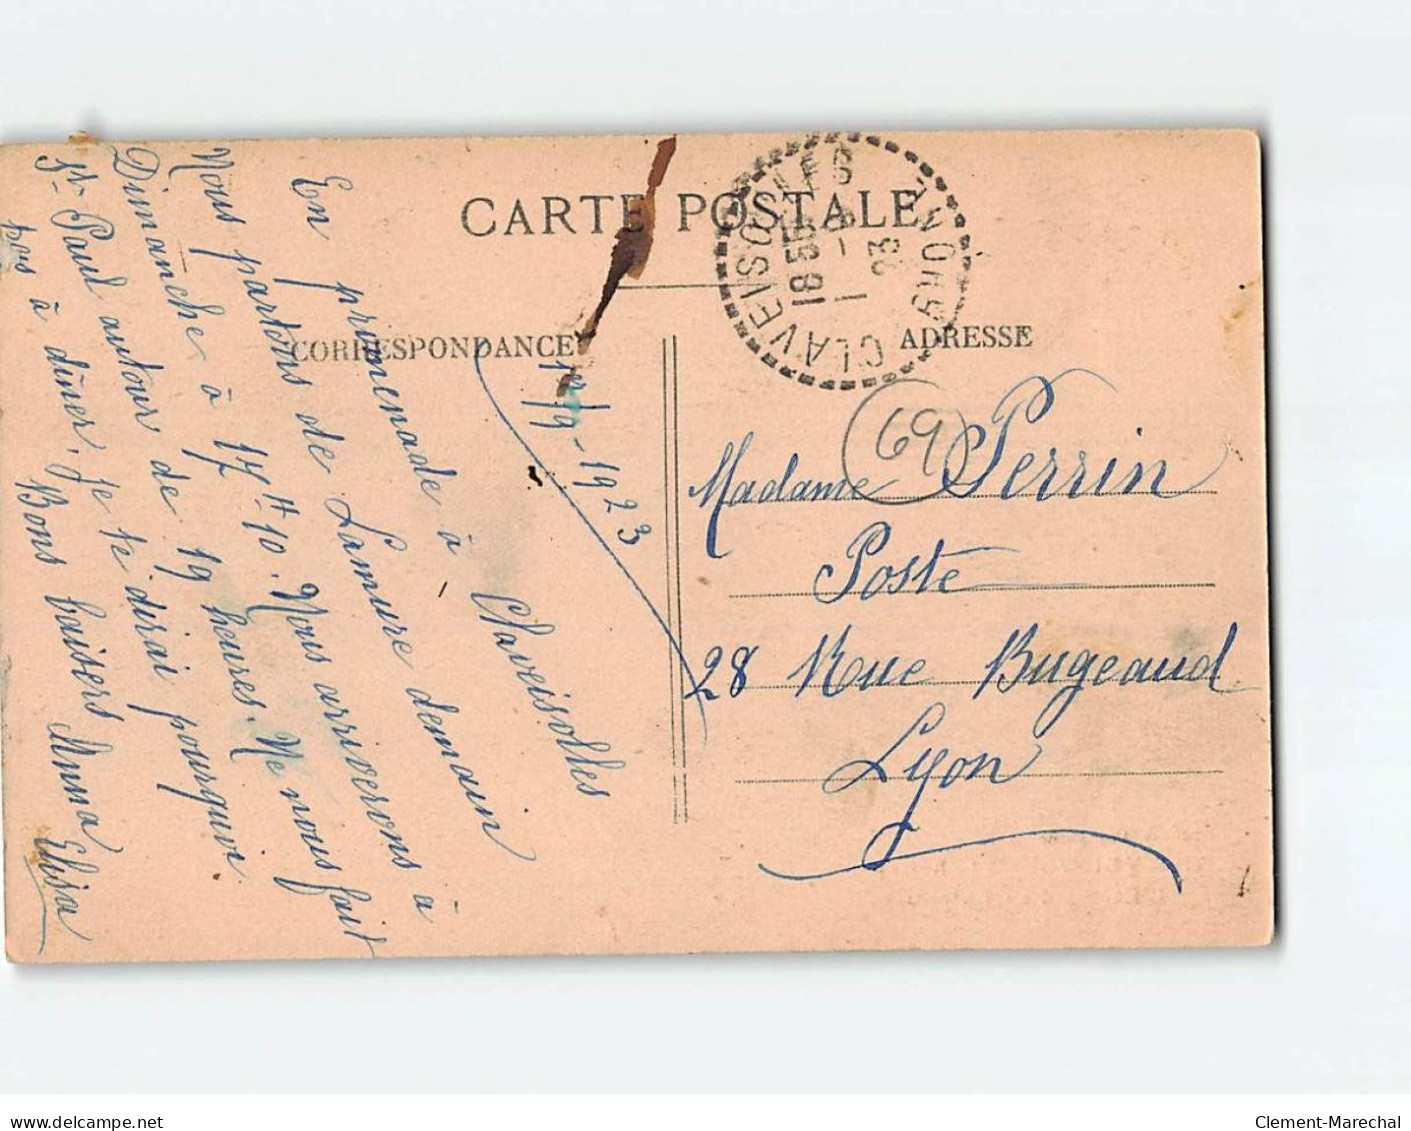 CARTE POSTALE
CORRESPONDANCE
1er/9-1923
En promenade à Claveisolles
Nous partons de Lamure demain
Dimanche à 17H10. Nous arriverons à
St Paul autour de 19 heures. Ne nous fait
pas à dîner, je te dirai pourquoi.
Bons baisers Anna
Elisa
CLAVEISOLLES
RHONE
18 55
1 - 9
23
ADRESSE
69
Madame Perrin
Poste
28 Rue Bugeaud
Lyon
Clement-Marechal